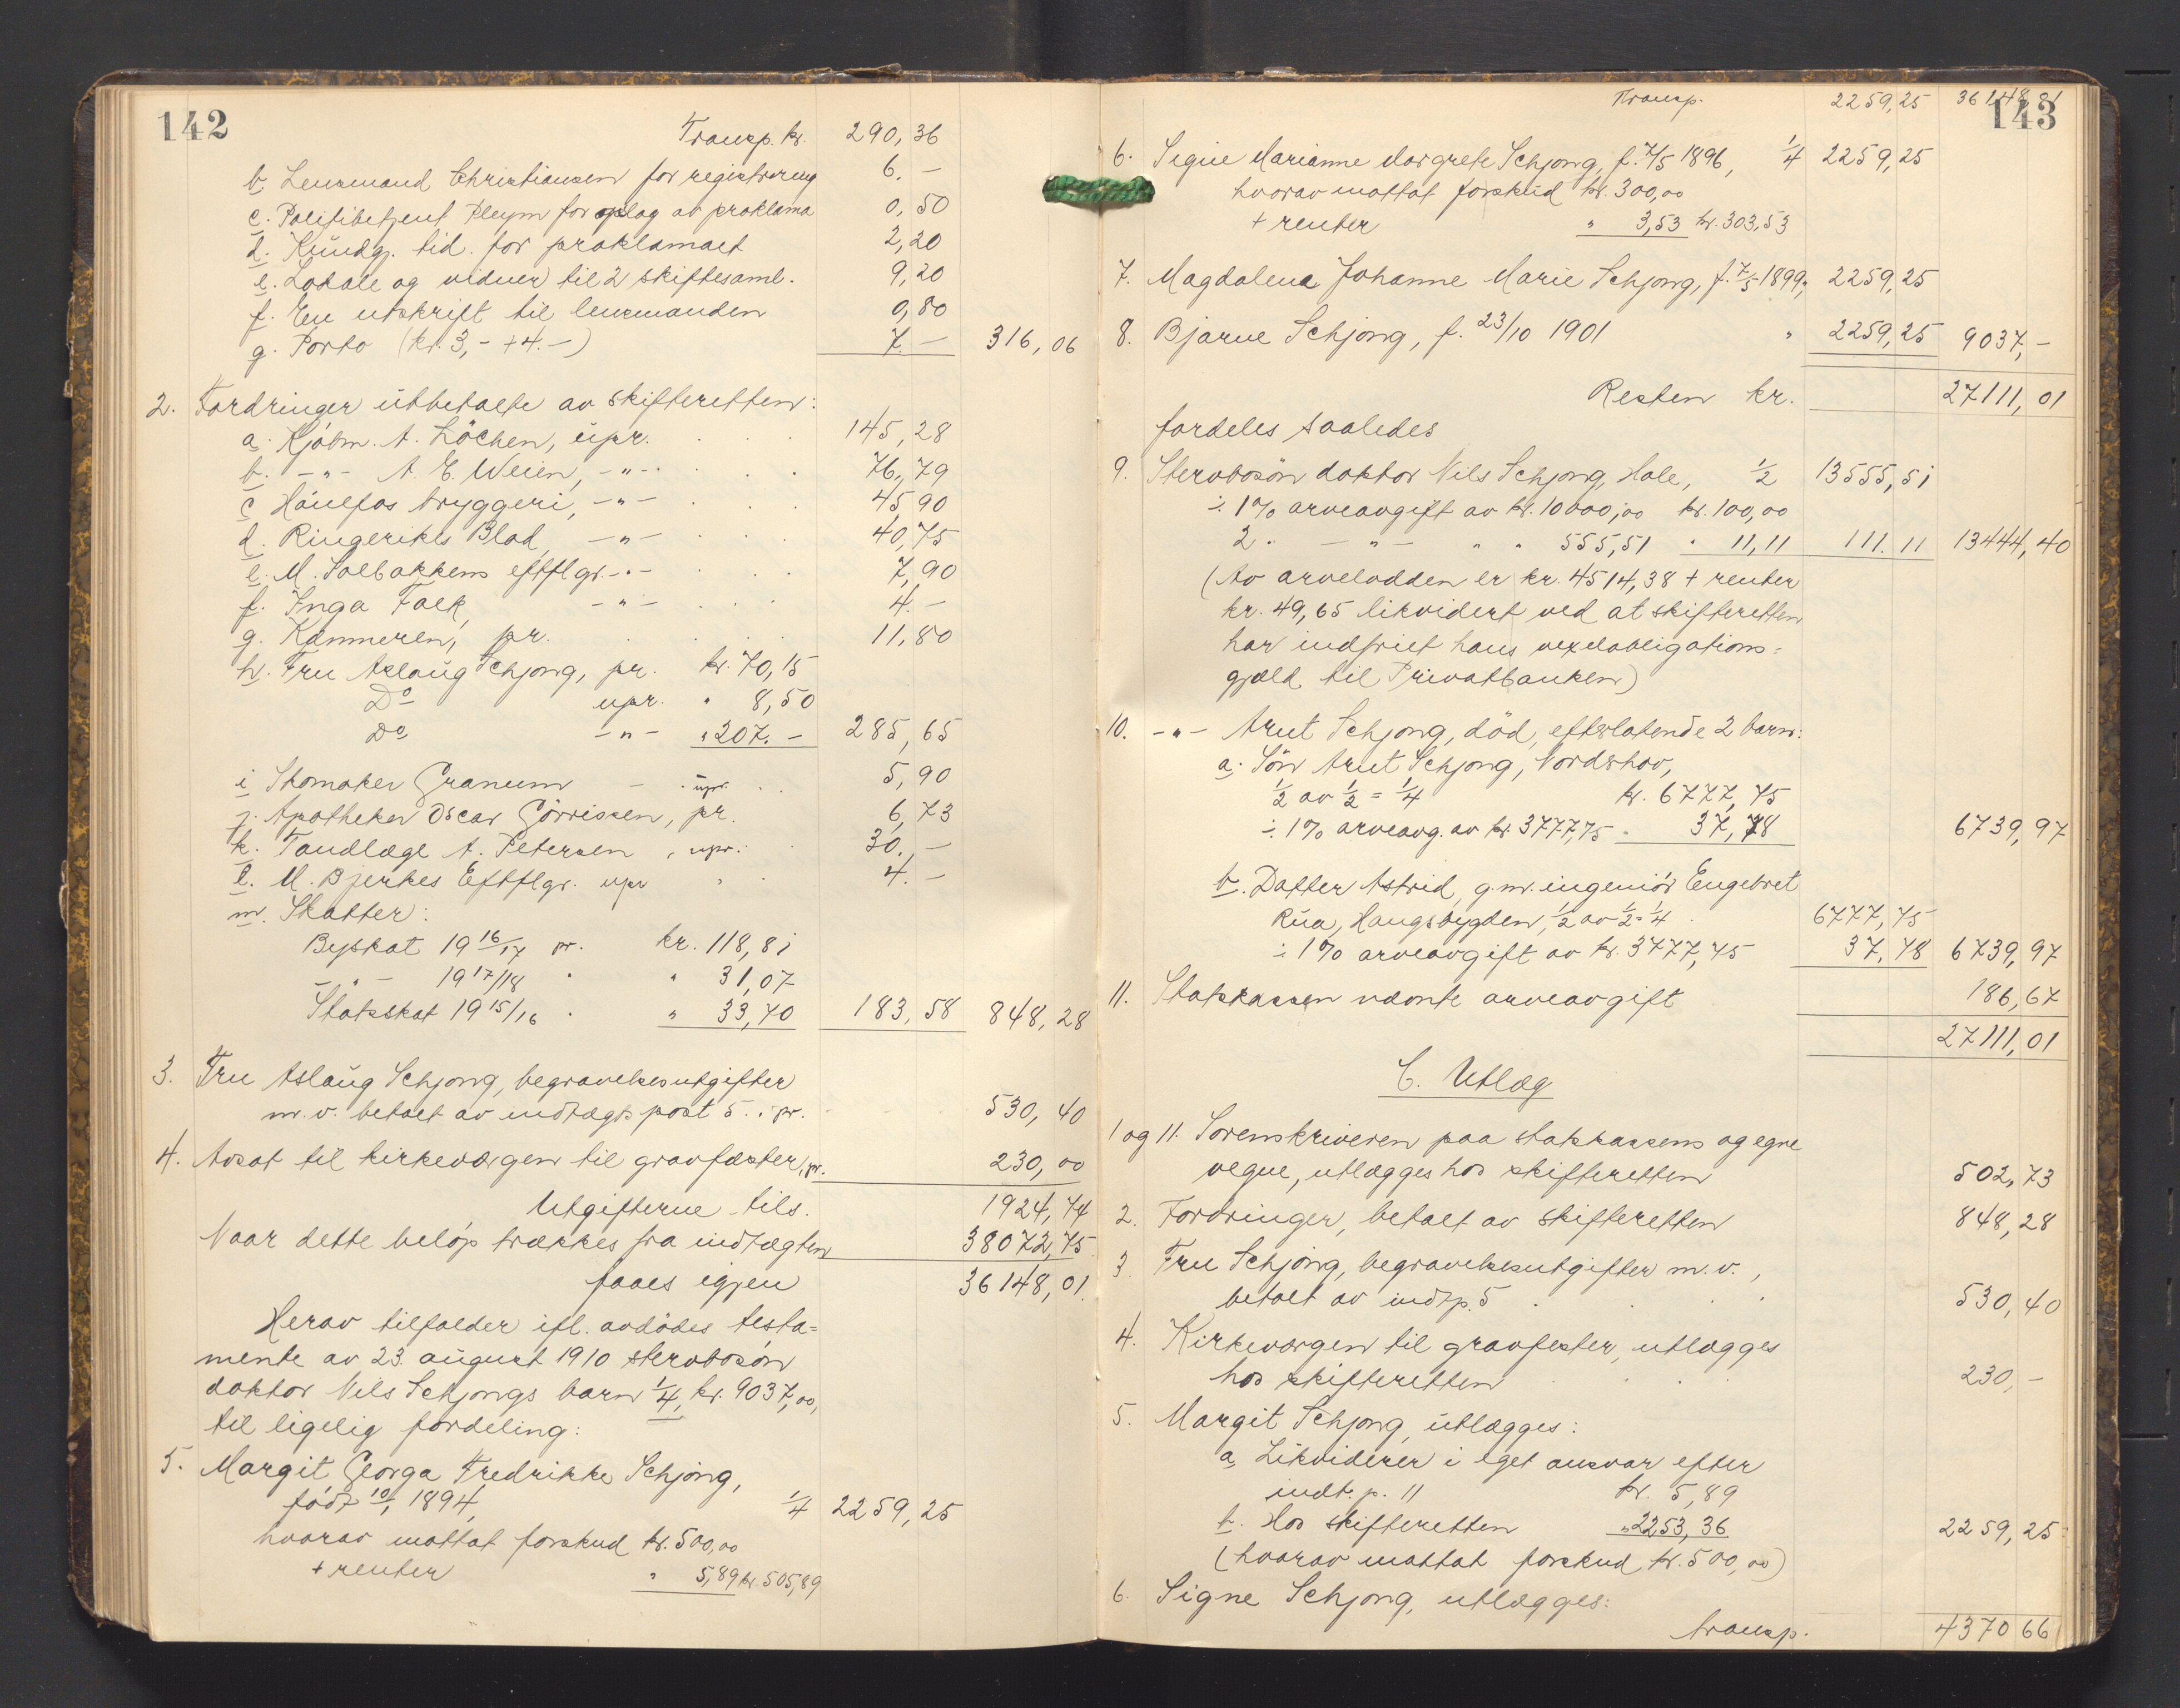 142
Transp. kr. 290,36
b. Lensmand Christiansen for registrering 6.-
c. Politibetjent Pleym for opslag av proklama 0,50
d. Kundgj. tid. for proklamaet 2,20
e. Lokale og vidner til 2 skiftesaml. 9,20
f. En utskrift til lensmanden 0,80
g. Porto (kr. 3,- + 4.-) 7.- 316,06
2. Fordringer utbetalte av skifteretten:
a. Kjøbm. A. Løchen, upr. 145,28
b. -"- A. E. Weien, -"- 76,79
c Hønefos bryggeri, -"- 45,90
d. Ringerikes Blad, -"- 40,75
e. M. Solbakkens eftflgr. -"- 7,90
f. Inga Falk, -"- 4.-
g. Kæmneren, pr. 11,80
h. Fru Aslaug Schjong, pr. kr. 70,15
Do upr. " 8,50
Do -"- " 207.- 285,65
i Skomaker Granum - upr. 5,90
j. Apotheker Oscar Görrissen, pr. 6,73
k. Tandlæge A. Petersen, upr. 30.-
l. M. Bjerkes Eftflgr. upr " 4.-
m. Skatter:
Byskat 19 16/17 pr. kr. 118,81
-"- 19 17/18 " " 31,07
Statsskat 19 15/16 " " 33,70 183,58 848,28
3. Fru Aslaug Schjong, begravelsesutgifter
m.v. betalt av indtægtspost 5. pr. 530,40
4. Avsat til kirkeværgen til gravfæster, pr. 230,00
Utgifterne tils. 1924,74
Naar dette beløp trækkes fra indtægten 38072,75
faaes igjen 36148,01
Herav tilfalder ifl. avdødes testa=
mente av 23. august 1910 stervbosøn
doktor Nils Schjongs barn 1/4, kr. 9037,00,
til ligelig fordeling:
5. Margit Georga Fredrikke Schjong,
født 10/1 1894, 1/4 2259,25
hvorav mottat forskud kr. 500,00
+ renter " 5,89 kr. 505,89
143
Transp. 2259,25 36148,01
6. Signe Marianne Margrete Schjong, f. 7/5 1896, 1/4 2259,25
hvorav mottat forskud kr. 300,00
+ renter " 3,53 kr. 303,53
7. Magdalena Johanne Marie Schjong, f. 7/5 1899, " 2259,25
8. Bjarne Schjong, f. 23/10 1901 " 2259,25 9037,-
Resten kr. 27111,01
fordeles saaledes
9. Stervbosøn doktor Nils Schjong, Hole, 1/2 13555,51
÷ 1% arveavgift av kr. 10000,00 kr. 100,00
2 " -"- " " 555,51 " 11,11 111.11 13444,40
(Av arvelodden er kr. 4514,38 + renter
kr. 49,65 likvidert ved at skifteretten
har indfriet hans vexelobligations-
gjæld til Privatbanken)
10. -"- Arnt Schjong, død, efterlatende 2 barn:
a. Søn Arnt Schjong, Norderhov,
1/2 av 1/2 = 1/4 kr. 6777,75
÷ 1% arveavg. av kr. 3777,75 " 37,78 6739,97
b. Datter Astrid, g.m. ingeniør Engebret
Rua, Haugsbygden, 1/2 av 1/2 = 1/4 6777,75
÷ 1% arveavgift av kr. 3777,75 37,78 6739,97
11. Statskassen nævnte arveavgift 186,67
27111,01
C. Utlæg
1 og 11. Sorenskriveren paa statskassens og egne
vegne, utlægges hos skifteretten 502,73
2. Fordringer, betalt av skifteretten 848,28
3. Fru Schjong, begravelsesutgifter m.v.,
betalt av indtp. 5 530,40
4. Kirkeværgen til gravfester, utlægges
hos skifteretten 230,-
5. Margit Schjong, utlægges:
a. Likviderer i eget ansvar efter
indt. p. 11 kr. 5,89
b. Hos skifteretten " 2253,36 2259,25
(hvorav mottat forskud kr. 500,00)
6. Signe Schjong, utlægges:
transp. 4370 66